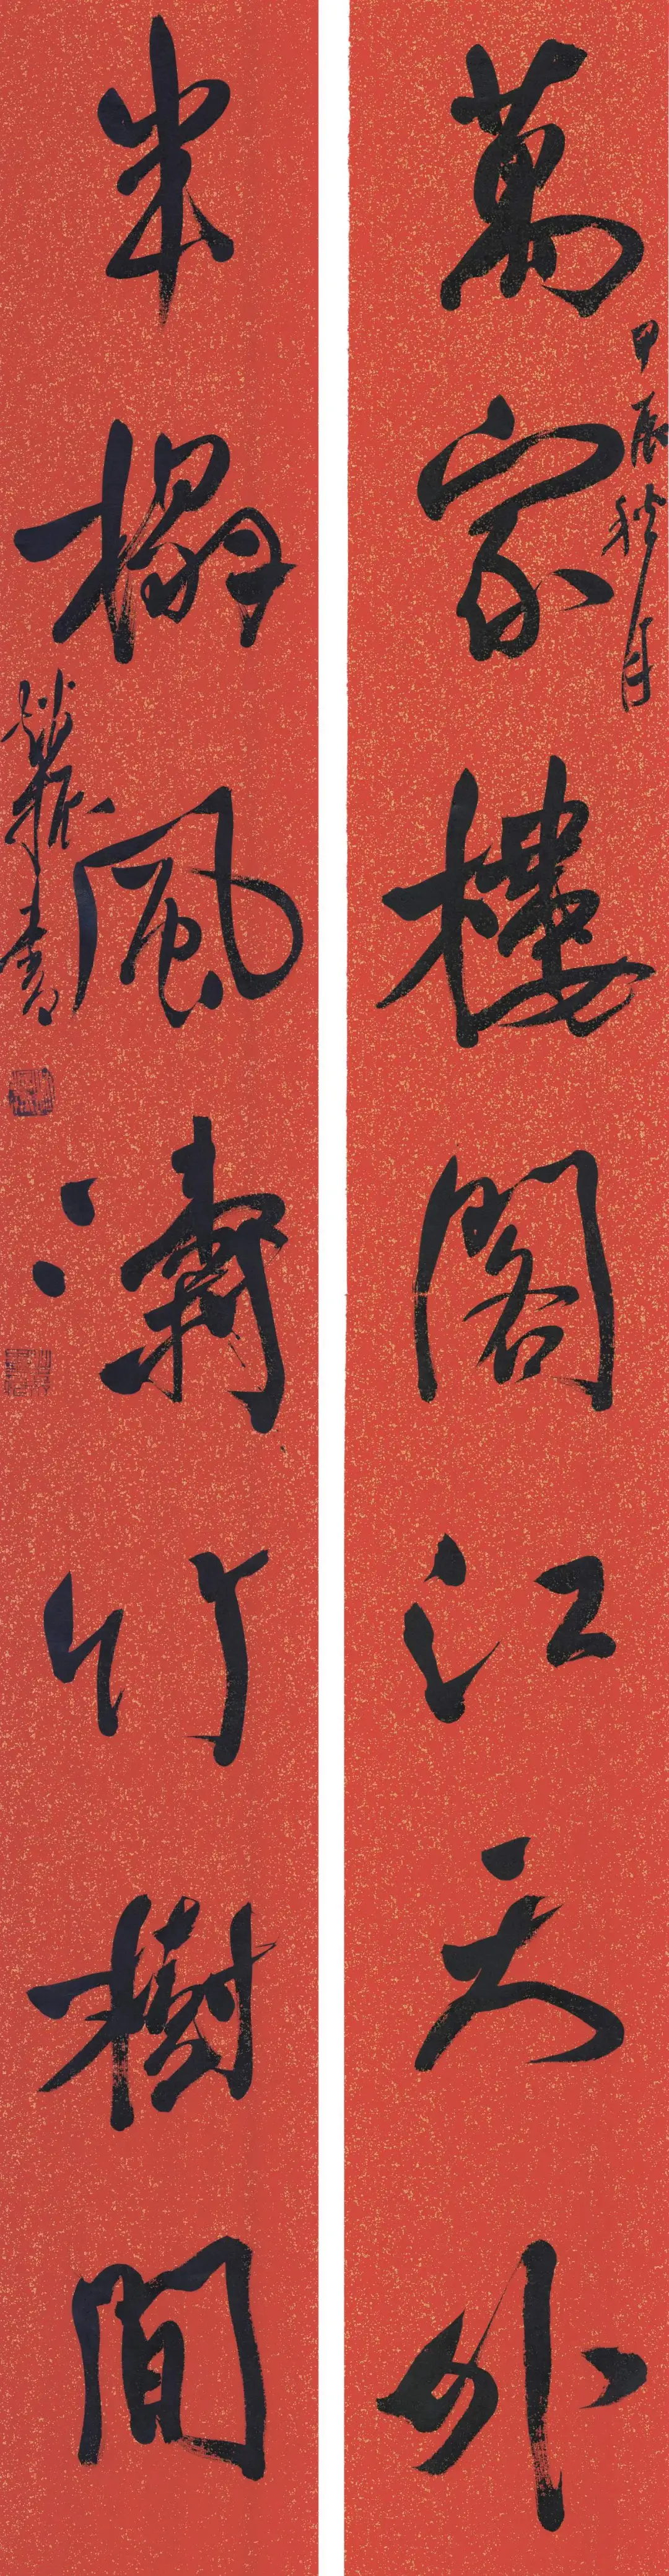 萬家樓閣江天外
甲辰秋月
半榻風濤竹樹間
書